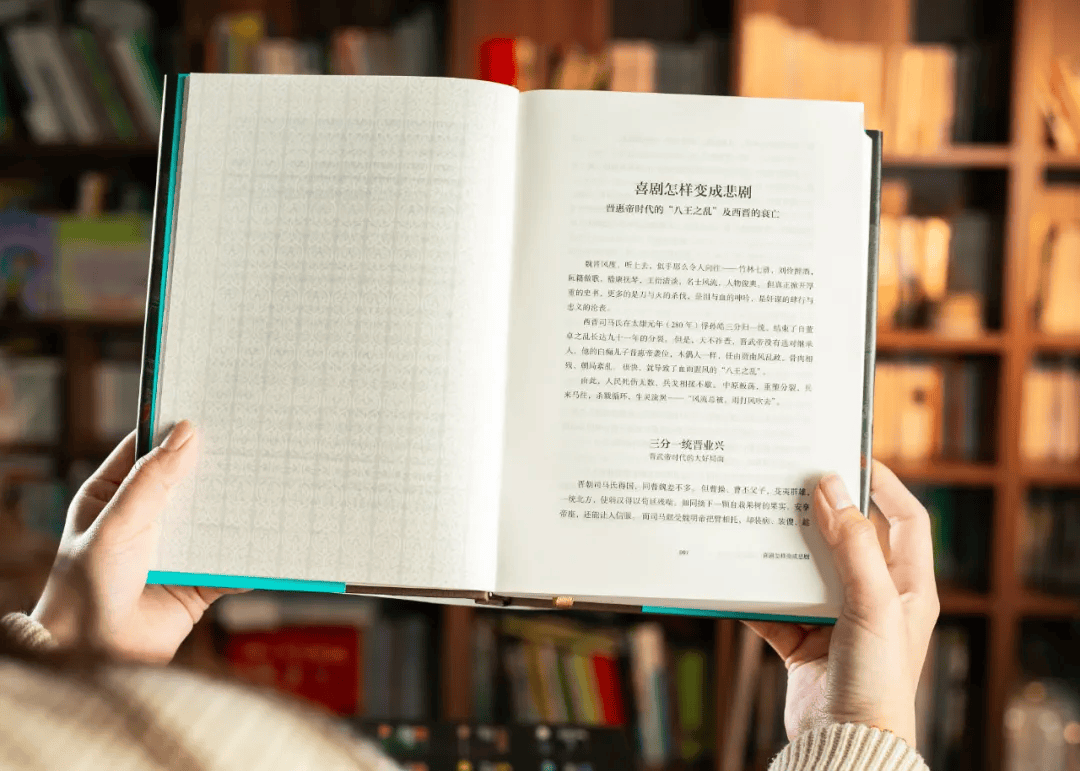 喜剧怎样变成悲剧
晋惠帝时代的“八王之乱”及西晋的衰亡
魏晋风度，听上去，似乎那么令人向往——竹林七贤，刘伶醉酒，
阮籍傲歌，嵇康抚琴，王衍清谈，名士风流，人物俊爽。但真正掀开厚
重的史书，更多的是刀与火的杀伐，泪与血的呻吟，是奸谋的肆行与
忠义的沦丧。
西晋司马氏在太康元年（280年）俘孙皓三分归一统，结束了自董
卓之乱长达九十一年的分裂。但是，天不祚晋，晋武帝没有选对继承
人，他的白痴儿子晋惠帝袭位，木偶人一样，任由贾南风乱政，骨肉相
残，朝局紊乱。很快，就导致了血雨腥风的“八王之乱”。
由此，人民死伤无数，兵戈相接不歇，中原板荡，重陷分裂，长
来马往，杀戮循环，生灵涂炭——“风流总被，雨打风吹去”。
三分一统晋业兴
晋武帝时代的大好局面
晋朝司马氏得国，同曹魏差不多。但曹操、曹丕父子，芟夷群雄，
一统北方，使弱汉得以苟延残喘，如同接下一颗自栽果树的果实，安享
帝座，还能让人信服。而司马懿受魏明帝把臂相托，却装病、装傻，趁
001
喜剧怎样变成悲剧